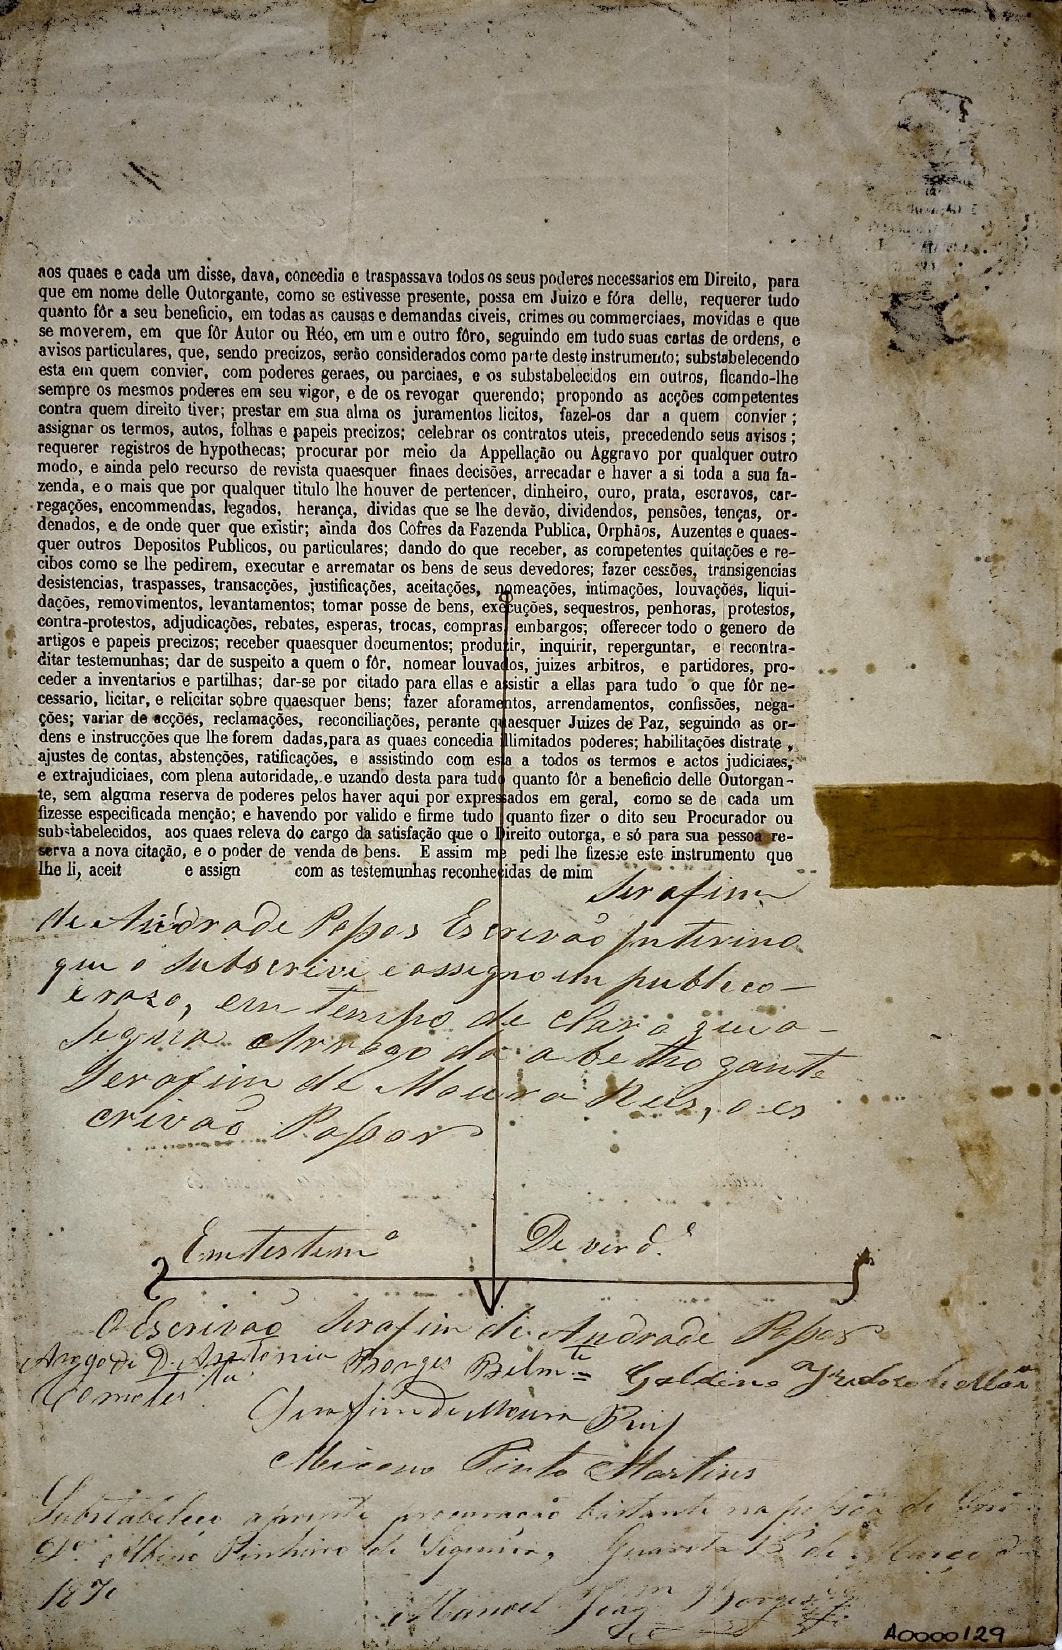 aos quaes e cada um disse, dava, concedia e traspassava todos os seus poderes necessarios em Direito, para
que em nome delle Outorgante, como se estivesse presente, possa em Juizo e fóra delle, requerer tudo
quanto fôr a seu beneficio, em todas as causas e demandas civeis, crimes ou commerciaes, movidas e que
se moverem, em que fôr Autor ou Réo, em um e outro fôro, seguindo em tudo suas cartas de ordens, e
avisos particulares, que, sendo precizos, serão considerados como parte deste instrumento; substabelecendo
esta em quem convier, com poderes geraes, ou parciaes, e os substabelecidos em outros, ficando-lhe
sempre os mesmos poderes em seu vigor, e de os revogar querendo; propondo as acções competentes
contra quem direito tiver; prestar em sua alma os juramentos licitos, fazel-os dar a quem convier;
assignar os termos, autos, folhas e papeis precizos; celebrar os contratos uteis, precedendo seus avisos;
requerer registros de hypothecas; procurar por meio da Appellação ou Aggravo por qualquer outro
modo, e ainda pelo recurso de revista quaesquer finaes decisões, arrecadar e haver a si toda a sua fa-
zenda, e o mais que por qualquer titulo lhe houver de pertencer, dinheiro, ouro, prata, escravos, car-
regações, encommendas, legados, herança, dividas que se lhe devão, dividendos, pensões, tenças, or-
denados, e de onde quer que existir; ainda dos Cofres da Fazenda Publica, Orphãos, Auzentes e quaes-
quer outros Depositos Publicos, ou particulares; dando do que receber, as competentes quitações e re-
cibos como se lhe pedirem, executar e arrematar os bens de seus devedores; fazer cessões, transigencias
desistencias, traspasses, transacções, justificações, aceitações, nomeações, intimações, louvações, liqui-
dações, removimentos, levantamentos; tomar posse de bens, execuções, sequestros, penhoras, protestos,
contra-protestos, adjudicações, rebates, esperas, trocas, compras, embargos; offerecer todo o genero de
artigos e papeis precizos; receber quaesquer documentos; produzir, inquirir, reperguntar, e recontra-
ditar testemunhas; dar de suspeito a quem o fôr, nomear louvados, juizes arbitros, e partidores, pro-
ceder a inventarios e partilhas; dar-se por citado para ellas e assistir a ellas para tudo o que fôr ne-
cessario, licitar, e relicitar sobre quaesquer bens; fazer aforamentos, arrendamentos, confissões, nega-
ções; variar de acções, reclamações, reconciliações, perante quaesquer Juizes de Paz, seguindo as or-
dens e instrucções que lhe forem dadas, para as quaes concedia illimitados poderes; habilitações distrate,
ajustes de contas, abstenções, ratificações, e assistindo com esta a todos os termos e actos judiciaes,
e extrajudiciaes, com plena autoridade, e uzando desta para tudo quanto fôr a beneficio delle Outorgan-
te, sem alguma reserva de poderes pelos haver aqui por expressados em geral, como se de cada um
fizesse especificada menção; e havendo por valido e firme tudo quanto fizer o dito seu Procurador ou
substabelecidos, aos quaes releva do cargo da satisfação que o Direito outorga, e só para sua pessoa re-
serva a nova citação, e o poder de venda de bens. E assim me pedi lhe fizesse este instrumento que
lhe li, aceit e assign com as testemunhas reconhecidas de mim Serafim
de Andrade Passos Escrivão Interino
que o subscrivi e assigno em publico
e razo, em tempo de claro que a
Arrogo da
Serafim de Moura Reis, o es
crivão Passos
Em testem.º De verd.e
O Escrivão Serafim de Andrade Passos
Arogo de D. Antonia Borges
Serafim de Moura Reis
Pinto Martins
Substabeleço a procuração bastante na pessoa de
Albino Pinheiro de Siqueira,
187
Manoel Joaq.m Borges
A0000129